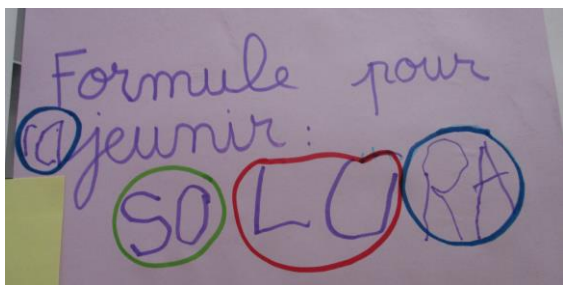 Formule pour
rajeunir :
SO LU RA